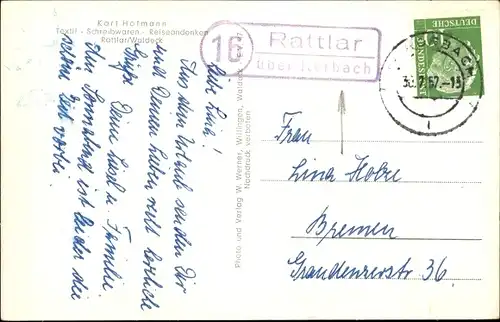 Karl Hofmann
Textil - Schreibwaren - Reiseandenken
Rattlar/Waldeck
16
Rattlar
über Korbach
DEUTSCHE
BUNDES
Liebe Lina!
Aus dem Urlaub senden Dir
und Deinen Lieben recht herzliche
Grüße Deine u. Familie.
Am Sonnabend ist leider die
schöne Zeit vorbei.
Photo und Verlag W. Werner, Willingen, Waldeck
Nachdruck verboten
Frau
Lina
Bremen
Graudenzerstr 36